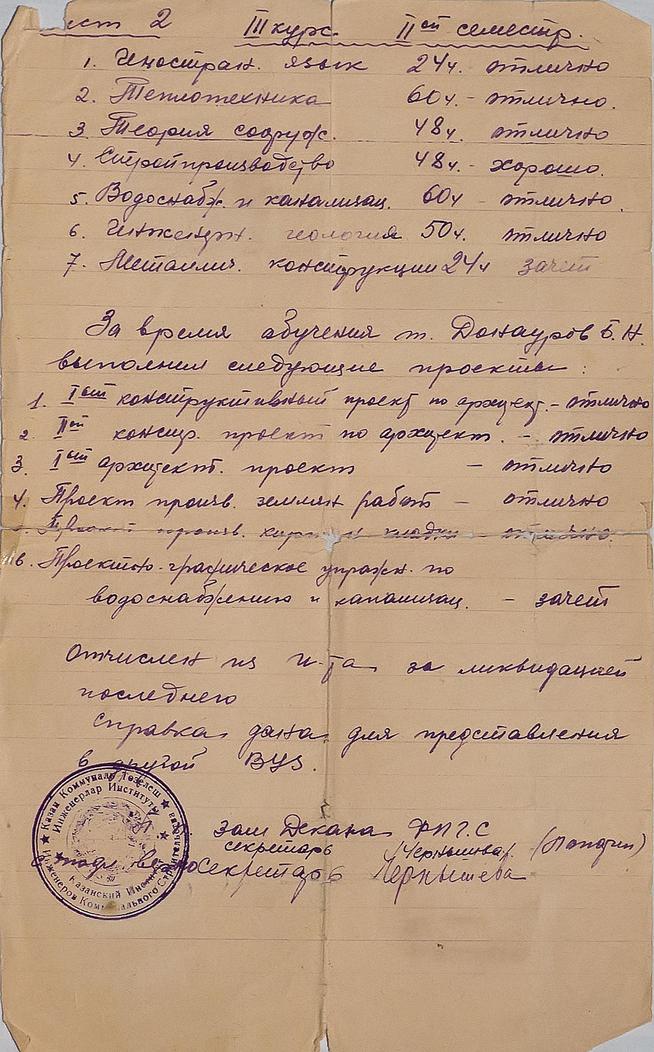 лист 2 III курс. IIой семестр.
1. Иностран. язык 24ч. отлично
2. Теплотехника 60ч. - отлично.
3. Теория сооруж. 48ч. отлично
4. Стройпроизводство 48ч. - хорошо.
5. Водоснабж. и канализац. 60ч - отлично.
6. Инженерн. геология 50ч. отлично
7. Металлич. конструкции 24ч зачет
За время обучения т. Донауров Б.Н.
выполнил следующие проекты:
1. Iый конструктивный проект по архитект. - отлично
2. IIой констр. проект по архитект. - отлично
3. Iый архитект. проект - отлично
4. Проект произв. землян работ - отлично
5. Проект произв. кирп. кладки - отлично.
6. Проектно-графическое упражн. по
водоснабжению и канализац. - зачет
Отчислен из и-та за ликвидацией
последнего
Справка дана для представления
в другой ВУЗ.
Казан Коммунал Төзелеш Инженерлар Институты
Казанский Институт Инженеров Коммунального Строительства
Зам Декана ФПГС
секретарь Чернышева
Секретарь Чернышева